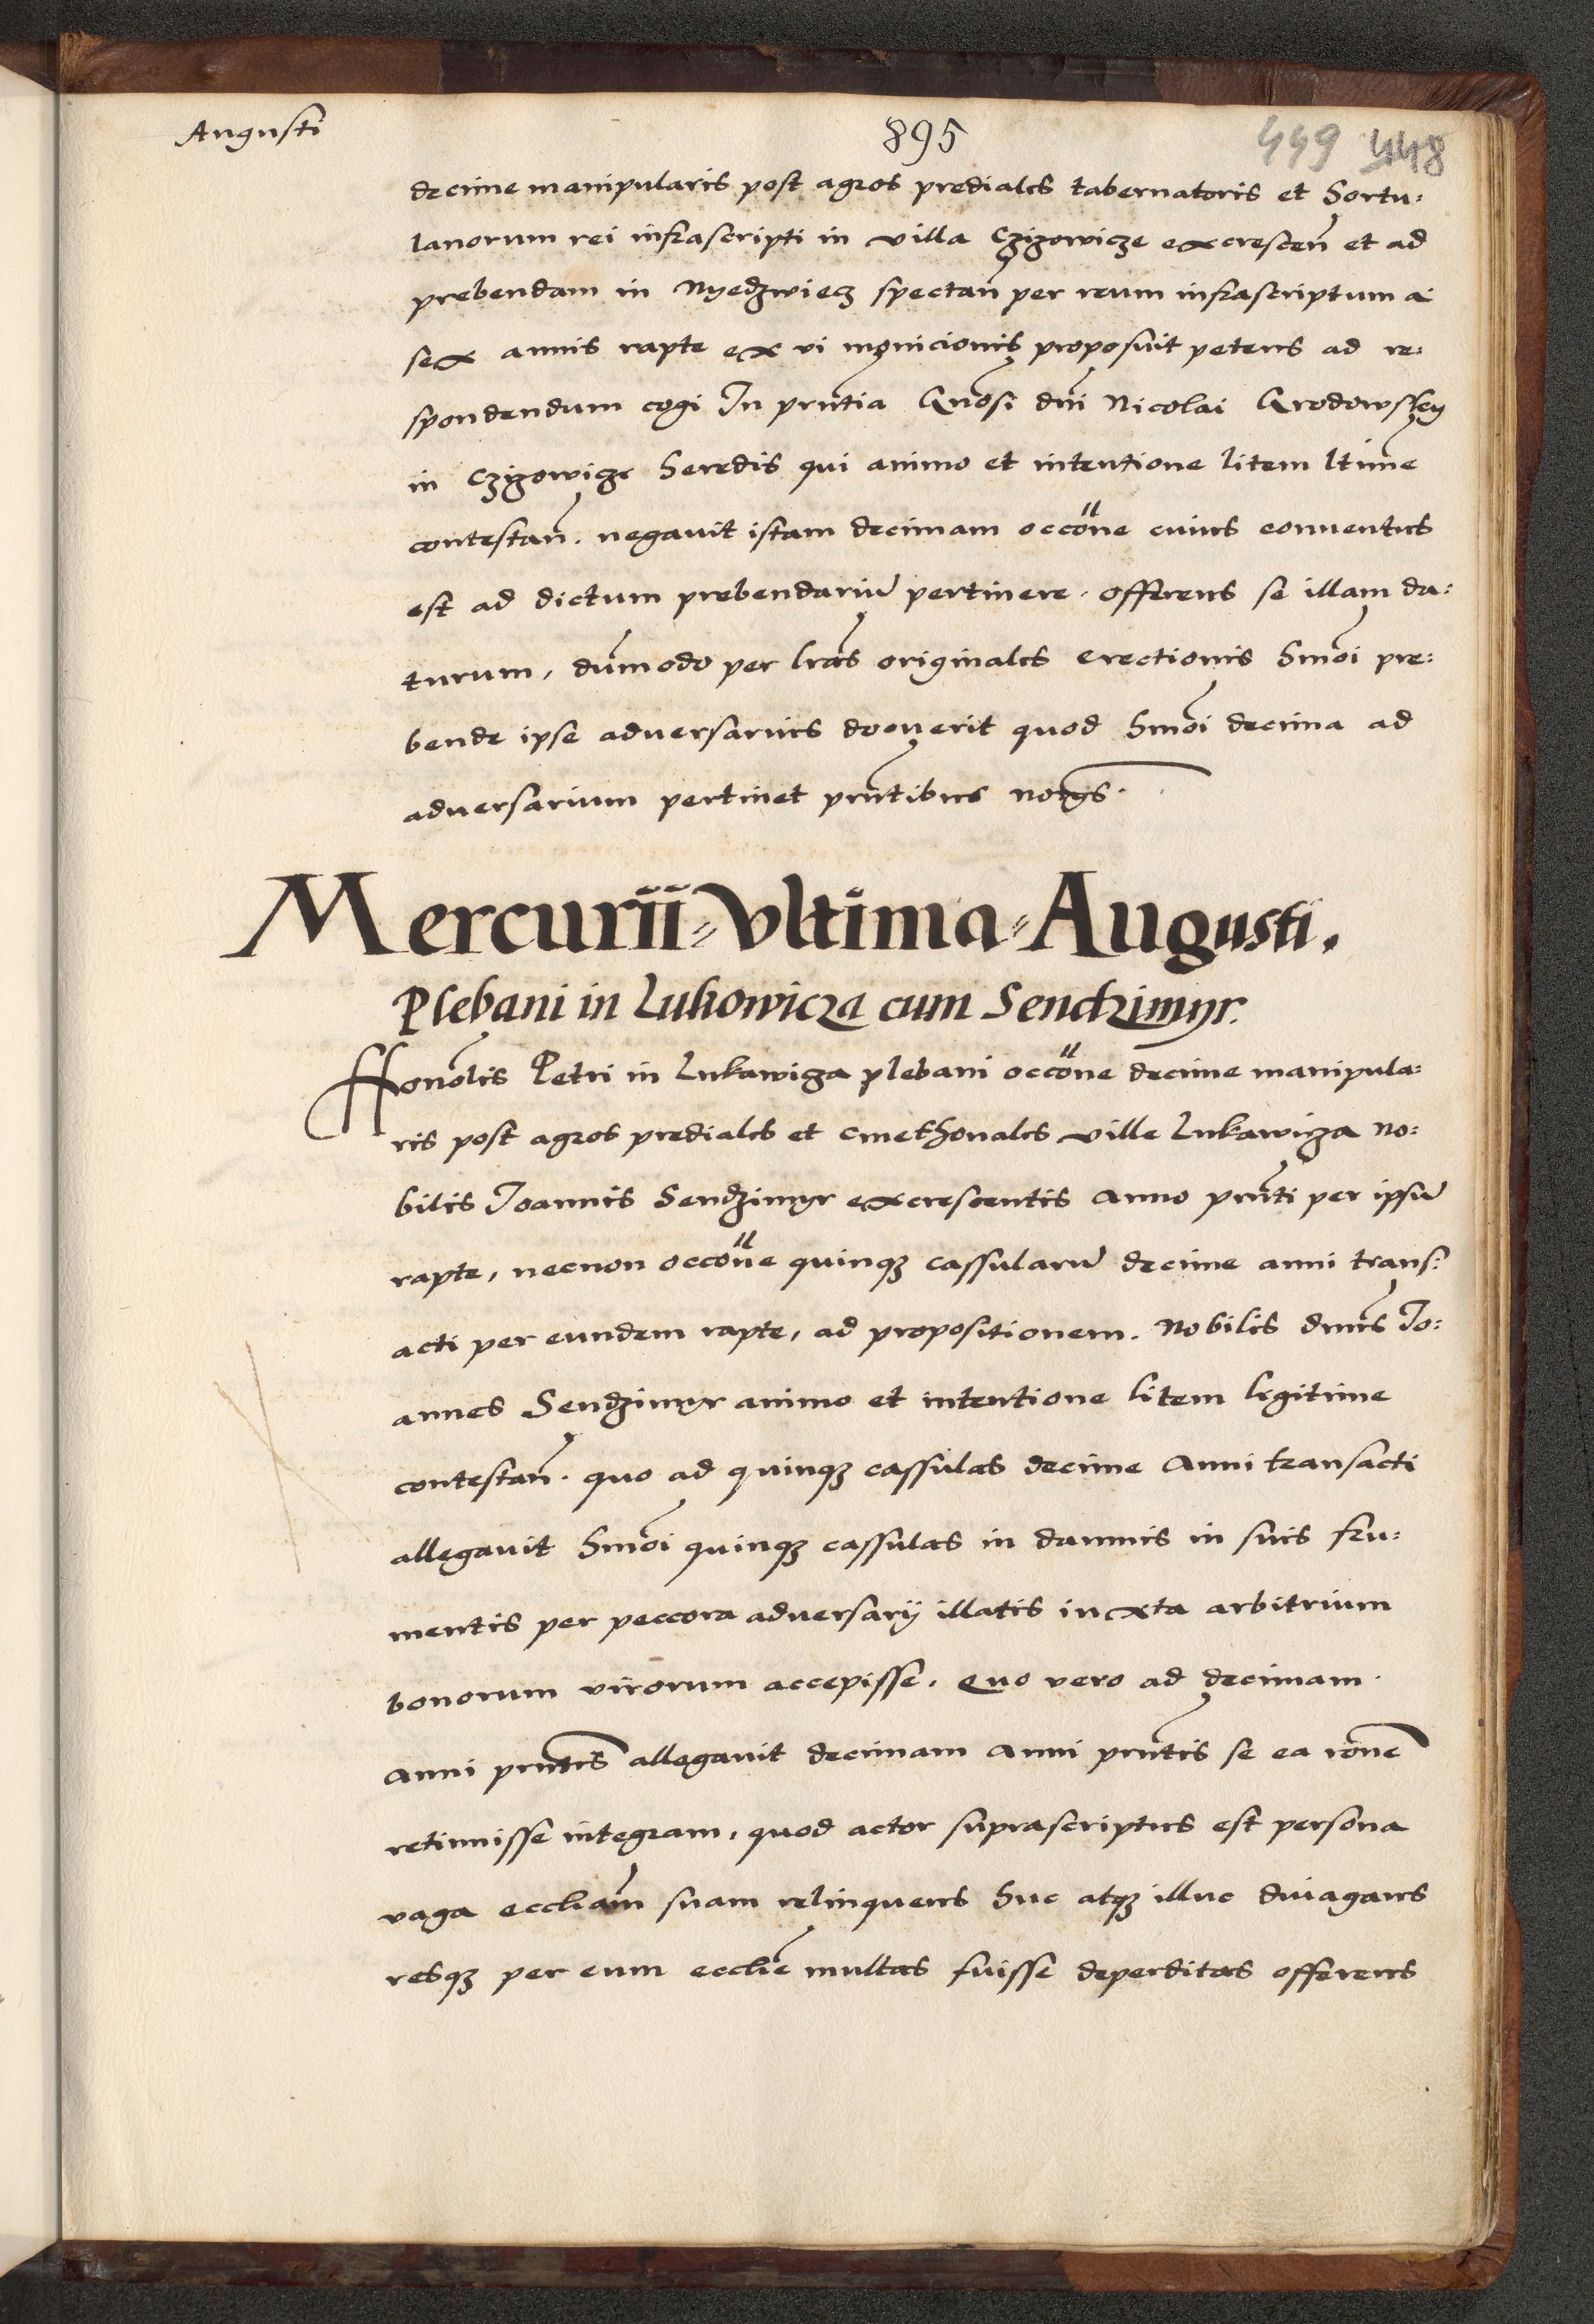 Augusti
895
449 448
decime manipularis post agros prediales tabernatoris et hortu:
lanorum rei infrascripti in villa Czizowicze excrescen̄ et ad
prebendam in Nyedzwiecz spectan̄ per reum infrascriptum a
sex annis rapte ex vi monicionis proposuit petens ad re:
spondendum cogi In pn̄tia Gn̄osi dn̄i Nicolai Grodowsky
in Czizowicze heredis qui animo et intentione litem ltime
contestan̄. negavit istam decimam occōne cuius conventus
est ad dictum prebendariū pertinere. offerens se illam da:
turum, dūmodo per lrās originales erectionis hmōi pre:
bende ipse adversarius docuerit quod hmōi decima ad
adversarium pertinet prn̄tibus
Mercurii ultima Augusti.
Plebani in Lukowicza cum Sendzimyr.
Honōlis Petri in Lukawicza plebani occōne decime manipula:
ris post agros prediales et cmethonales ville Lukawicza No:
bilis Joannis Sendzimyr excrescentis Anno prn̄ti per ipsū
rapte, necnon occōne quinqz cassularū decime anni trans:
acti per eundem rapte, ad propositionem. Nobilis dn̄us Jo:
annes Sendzimyr animo et intentione litem legitime
contestan̄. quo ad quinqz cassulas decime Anni transacti
allegavit hmōi quinqz cassulas in damnis in suis fru:
mentis per peccora adversarij illatis iuxta arbitrium
bonorum virorum accepisse. Quo vero ad decimam
anni prn̄tis allegavit decimam Anni prn̄tis se ea rōne
retinuisse integram, quod actor suprascriptus est persona
vaga eccliam̄ suam relinquens huc atqz illuc divagans
resqz per eum eccliē multas fuisse deperditas offerens